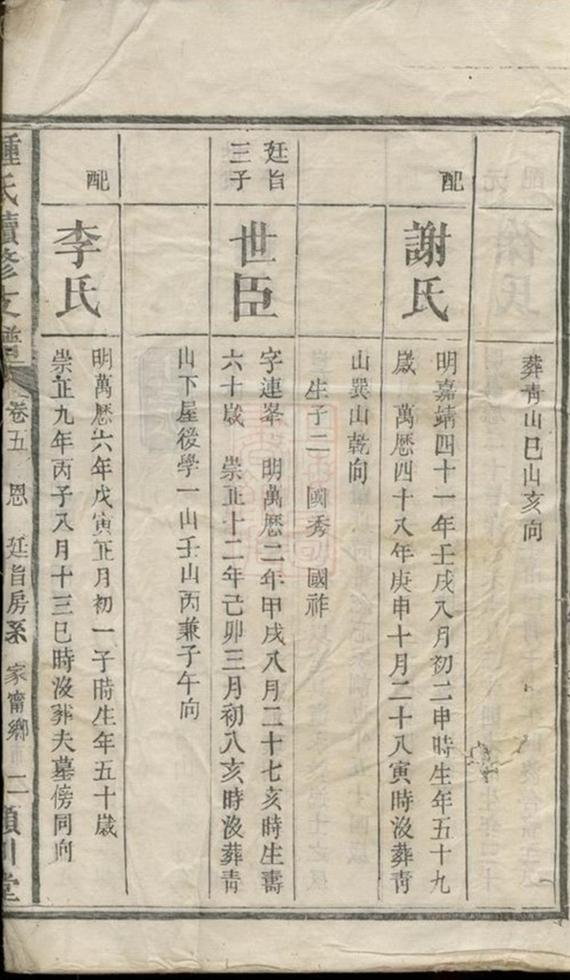 葬青山巳山亥向
配
謝氏
明嘉靖四十一年壬戌八月初二申時生年五十九
歲 萬歷四十八年庚申十月二十八寅時沒葬青
山巽山乾向
生子二 國秀 國祚
廷旨
三子
世臣
字連峯 明萬歷二年甲戌八月二十七亥時生壽
六十歲 崇正十二年己卯三月初八亥時沒葬青
山下屋後學一山壬山丙兼子午向
配
李氏
明萬歷六年戊寅正月初一子時生年五十歲
崇正九年丙子八月十三巳時沒葬夫墓傍同向
鍾氏續修支譜 卷五 恩 廷旨房系 家甯鄉 二 潁川堂